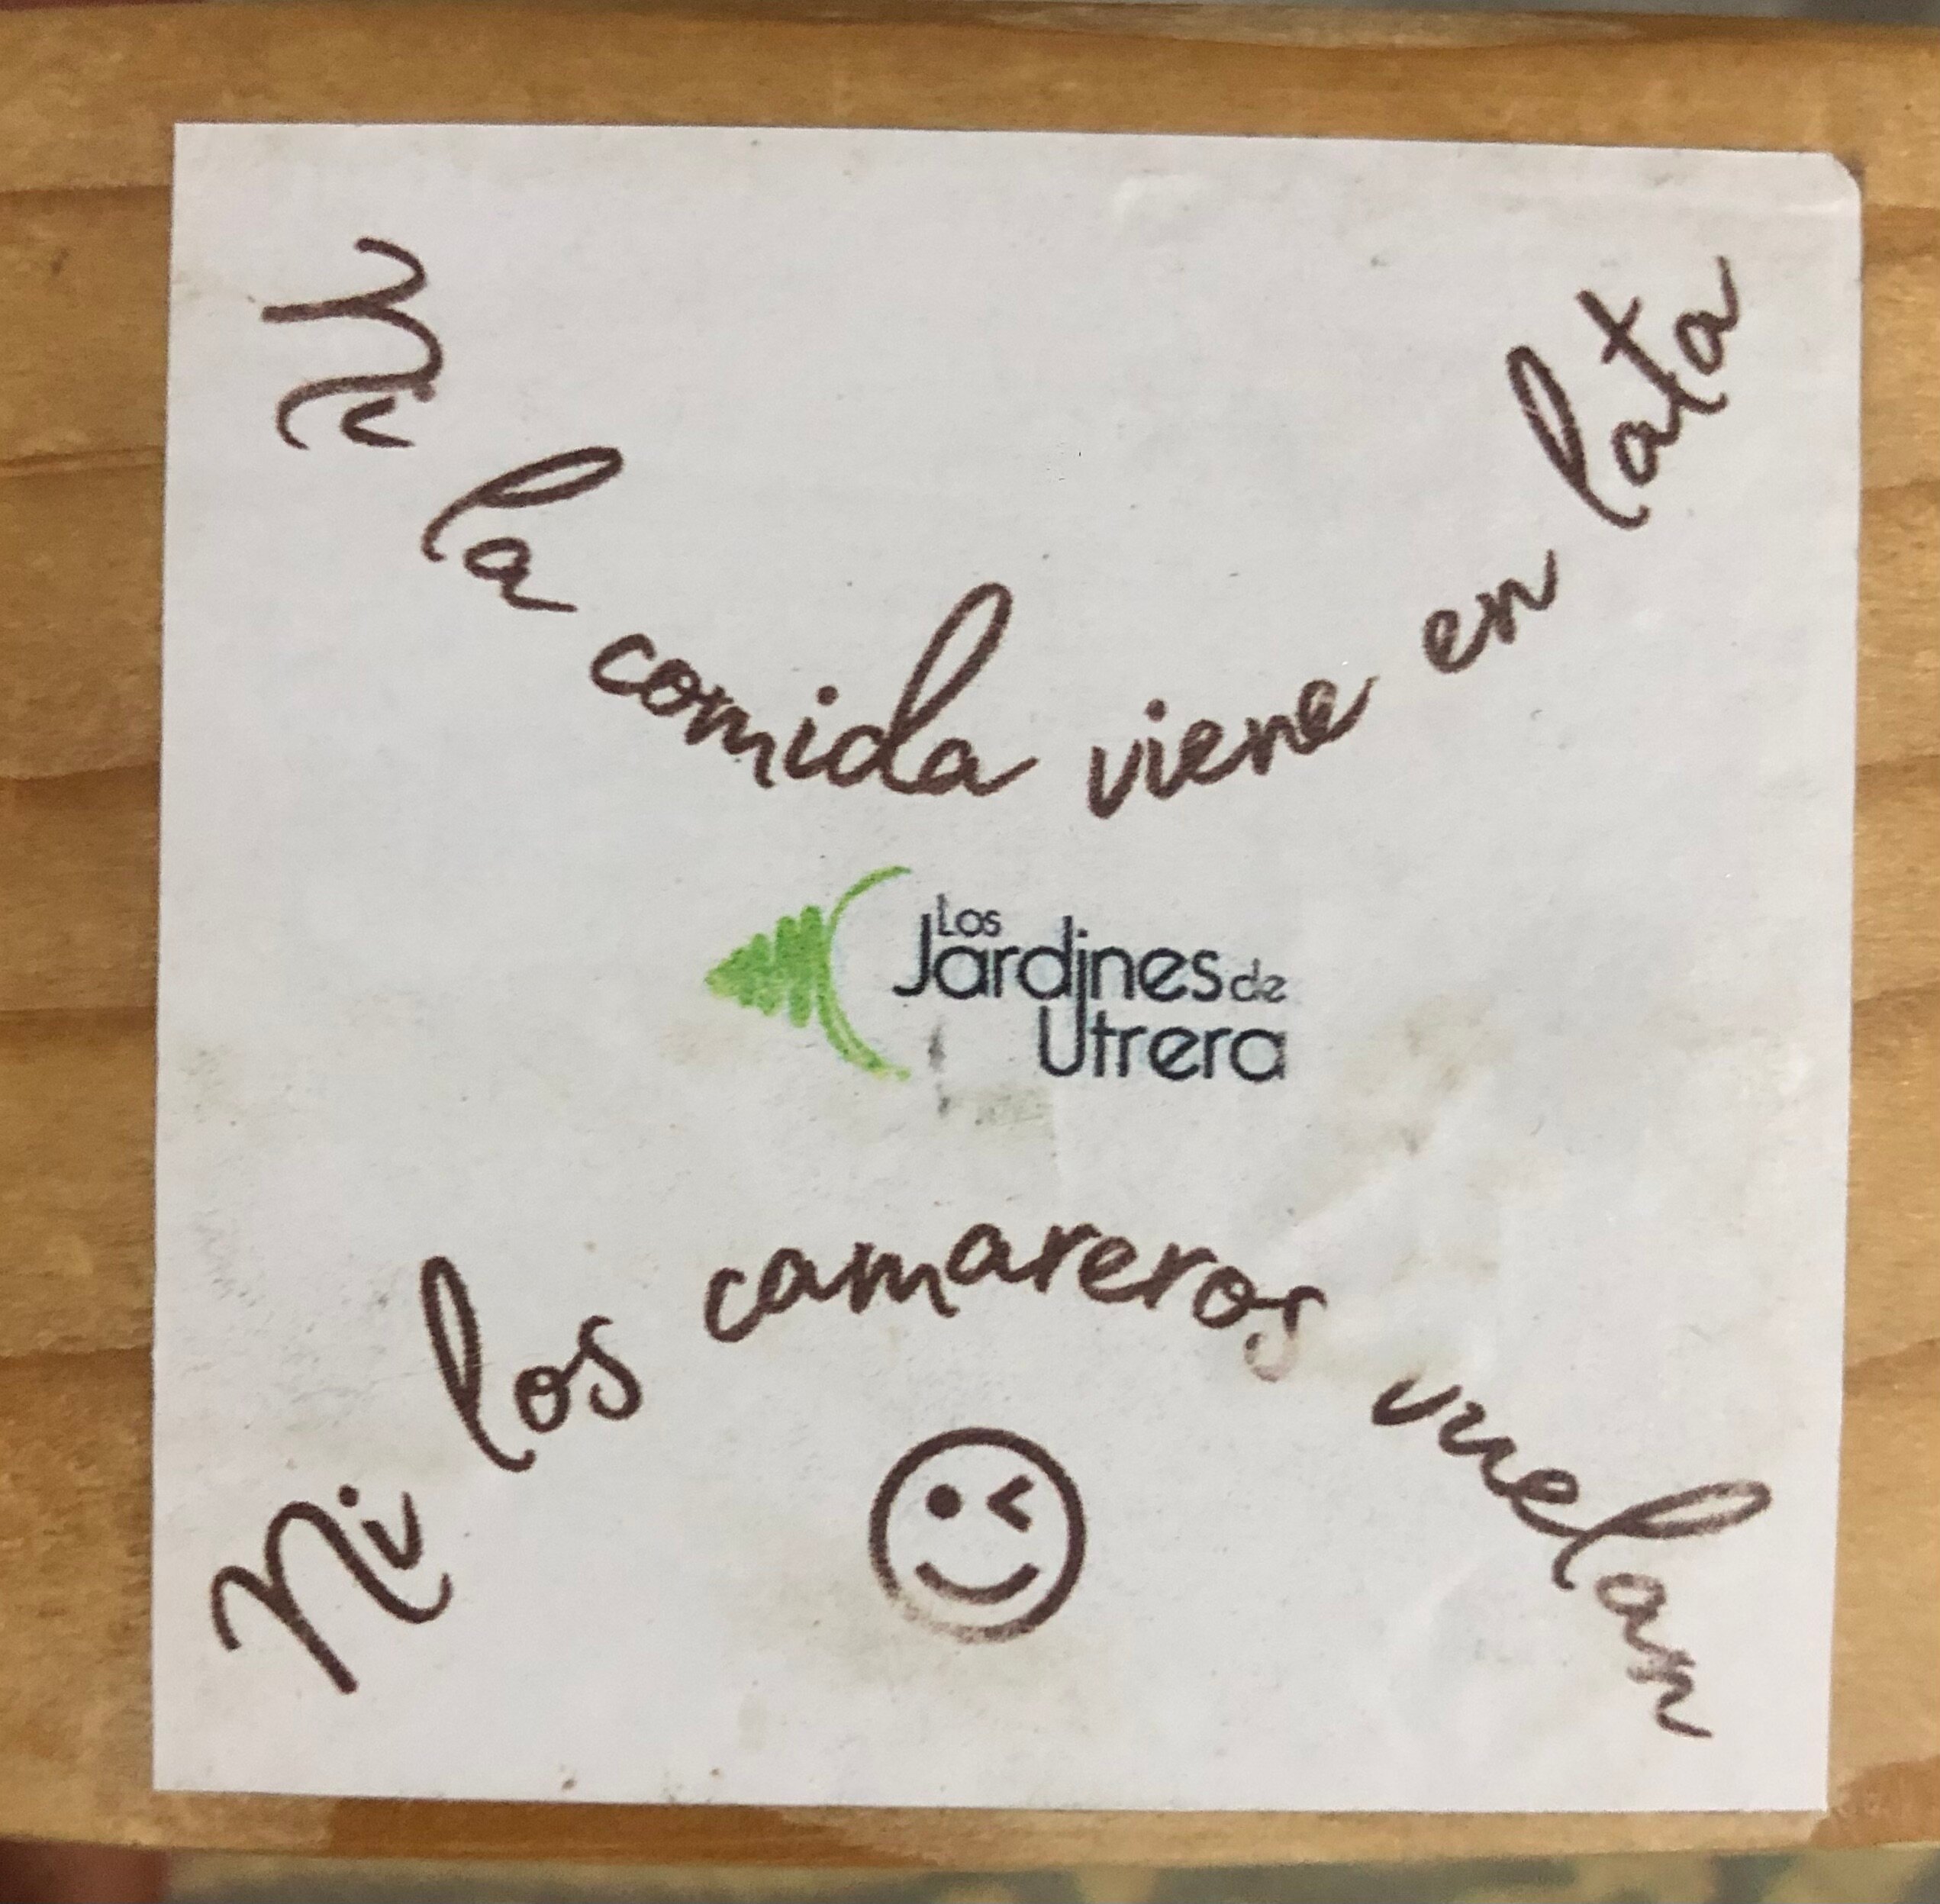 Ni la comida viene en lata
Los
Jardines de
Utrera
Ni los camareros vuelan